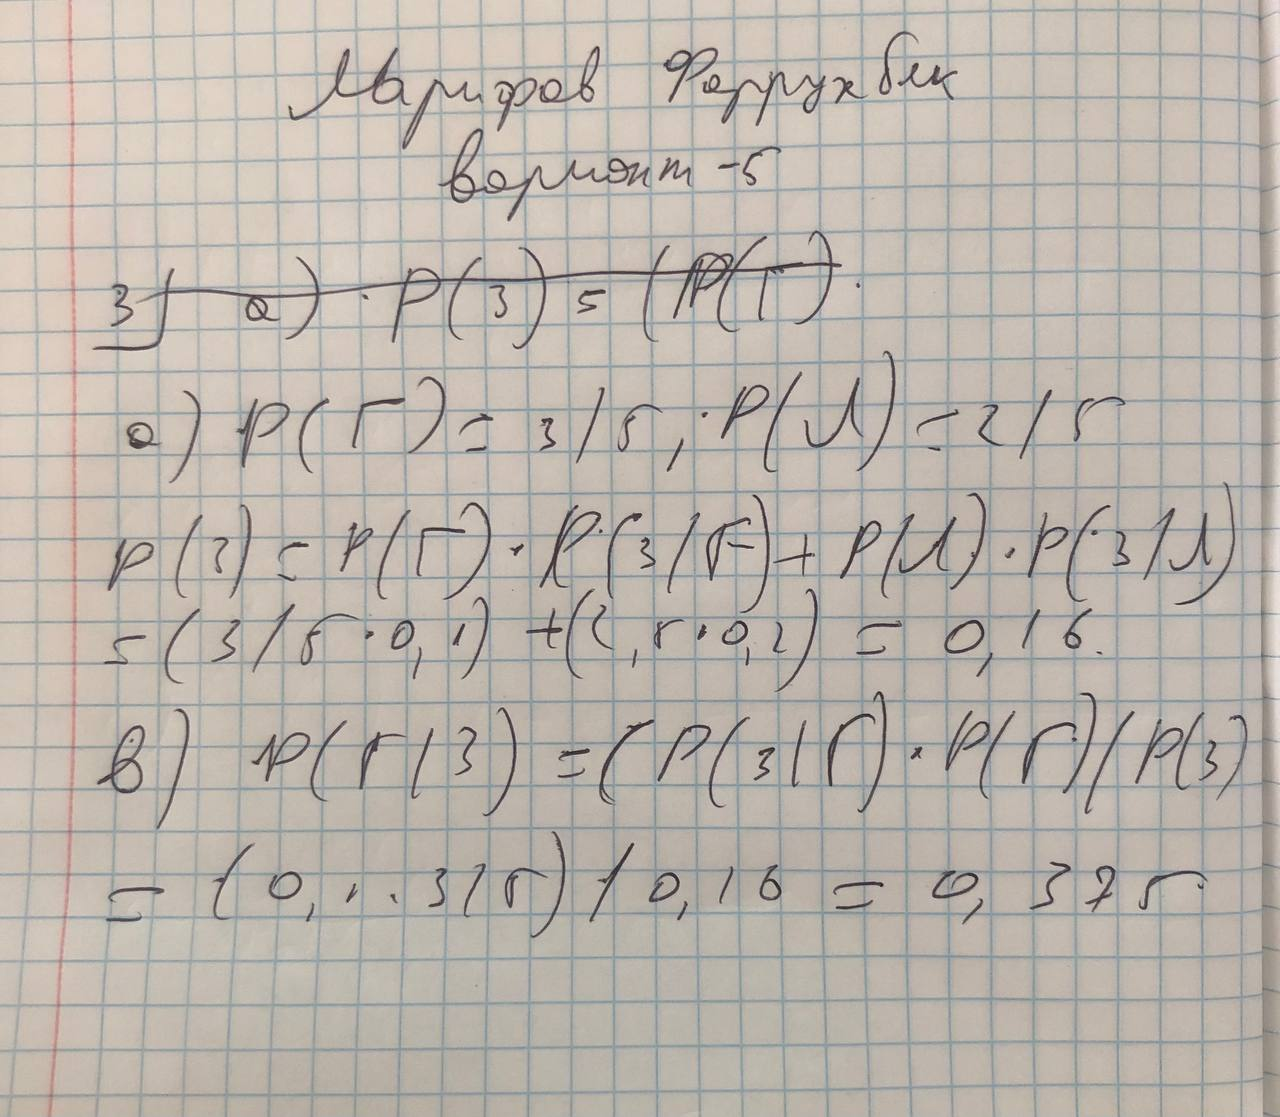 Марифов Фаррухбек
вариант -5
3) а) P(З) = (P(Г).
а) P(Г) = 3/5, P(Л) = 2/5
P(З) = P(Г) · P(З/Г) + P(Л) · P(З/Л)
= (3/5 · 0,1) + (2,5 · 0,2) = 0,16.
в) P(Г/З) = (P(З/Г) · P(Г) / P(З)
= (0,1 · 3/5) / 0,16 = 0,375